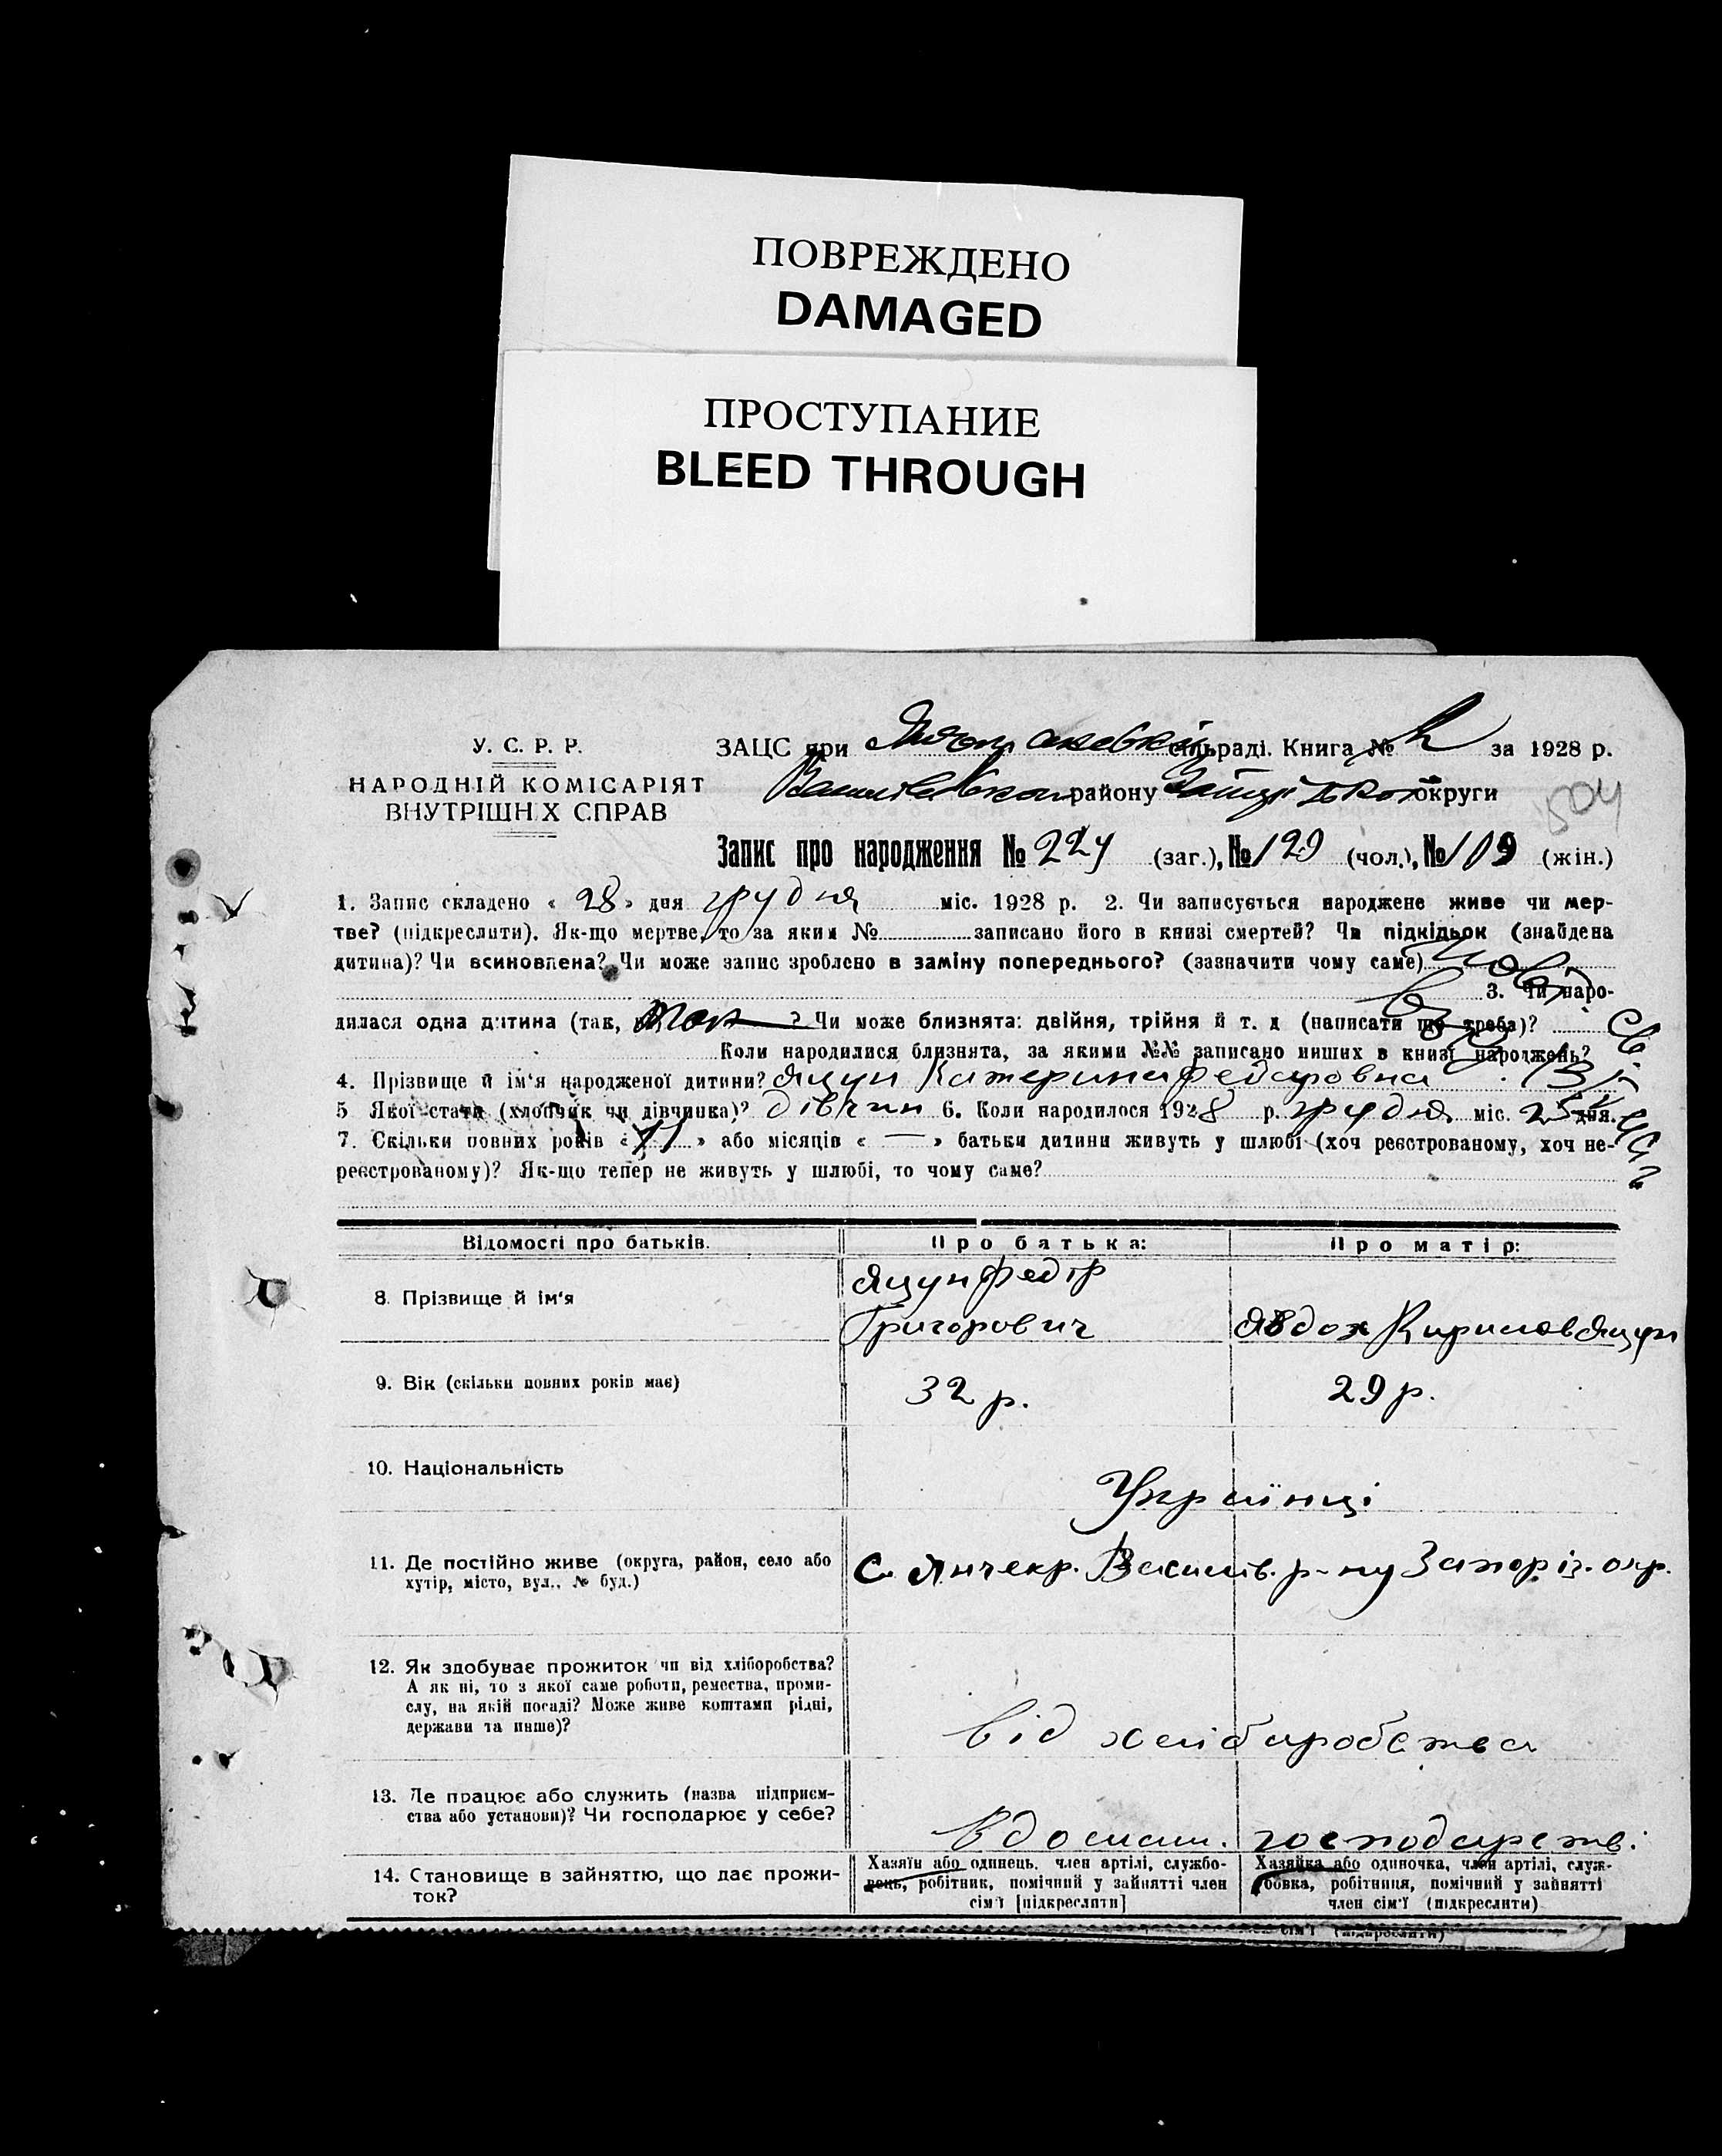 ПОВРЕЖДЕНО
DAMAGED
ПРОСТУПАНИЕ
BLEED THROUGH
У. С. Р. Р.
НАРОДНІЙ КОМІСАРІЯТ
ВНУТРІШН.Х СПРАВ
ЗАЦС при сільраді. Книга № за 1928 р.
району округи
504
Запис про народження № 224 (заг.), № 129 (чол.), № 109 (жін.)
1. Запис складено « 28 » дня грудня міс. 1928 р. 2. Чи записується народжене живе чи мер-
тве? (підкреслити). Як-що мертве, то за яким № записано його в книзі смертей? Чи підкідьок (знайдена
дитина)? Чи всиновлена? Чи може запис зроблено в заміну попереднього? (зазначити чому саме)
3. Чи наро-
дилася одна дитина (так, ? Чи може близнята: двійня, трійня й т. д (написати що треба)?
Коли народилися близнята, за якими №№ записано инших в книзі народжень?
4. Прізвище й ім'я народженої дитини? Яцун Катерина Федоровна
5 Якої стати (хлопчик чи дівчинка)? дівчин 6. Коли народилося 1928 р. грудня міс. 25 дня.
7. Скільки повних років « 11 » або місяців « — » батьки дитини живуть у шлюбі (хоч реєстрованому, хоч не-
реєстрованому)? Як-що тепер не живуть у шлюбі, то чому саме?
Відомості про батьків. Про батька: Про матір:
8. Прізвище й ім'я Яцун Федір
Григорович Явдох Кирилов Яцун
9. Вік (скільки повних років має) 32 р. 29 р.
10. Національність Українці
11. Де постійно живе (округа, район, село або
хутір, місто, вул., № буд.) с. Янчекр. Василів. р-ну Запоріз. окр.
12. Як здобуває прожиток чи від хліборобства?
А як ні, то з якої саме роботи, ремества, проми-
слу, на якій посаді? Може живе коштами рідні,
держави та инше)? від хліборобства
13. Де працює або служить (назва підприєм-
ства або установи)? Чи господарює у себе? В домаш. господарстві.
14. Становище в зайняттю, що дає прожи-
ток?
Хазяїн або одинець, член артілі, службо-
вець, робітник, помічний у зайнятті член
сім'ї [підкреслити]
Хазяйка або одиночка, член артілі, служ-
бовка, робітниця, помічний у зайнятті
член сім'ї (підкреслити)
сім'ї (підкреслити)